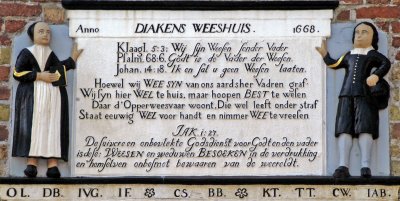 Anno DIAKENS WEESHUIS. 1668.
Klaagl. 5:3. Wij sijn Weesen sonder Vader
Psalm. 68:6. Godt is de Vader der Weesen.
Johan. 14:18. Ik en sal u geen Weesen laaten.
Hoewel wij WEE SYN van ons aardsher Vadren graf
Wij sijn hier WEL te huis, maar hoopen BEST te wesen
Daar d'Opperweesvaar woont, Die wel leeft onder straf
Staat eeuwig WEL voor handt en nimmer WEE te vreesen.
JAK. 1:27.
De suivere en onbevlekte Godsdienst voor Godt en den vader
is dese: WEESEN en weduwen BESOEKEN in de verdrukking
en hemselven onbesmet bewaaren van de weereldt.
OL. DB. IVG. IF. CS-BB. KT. TT. CW. IAB.